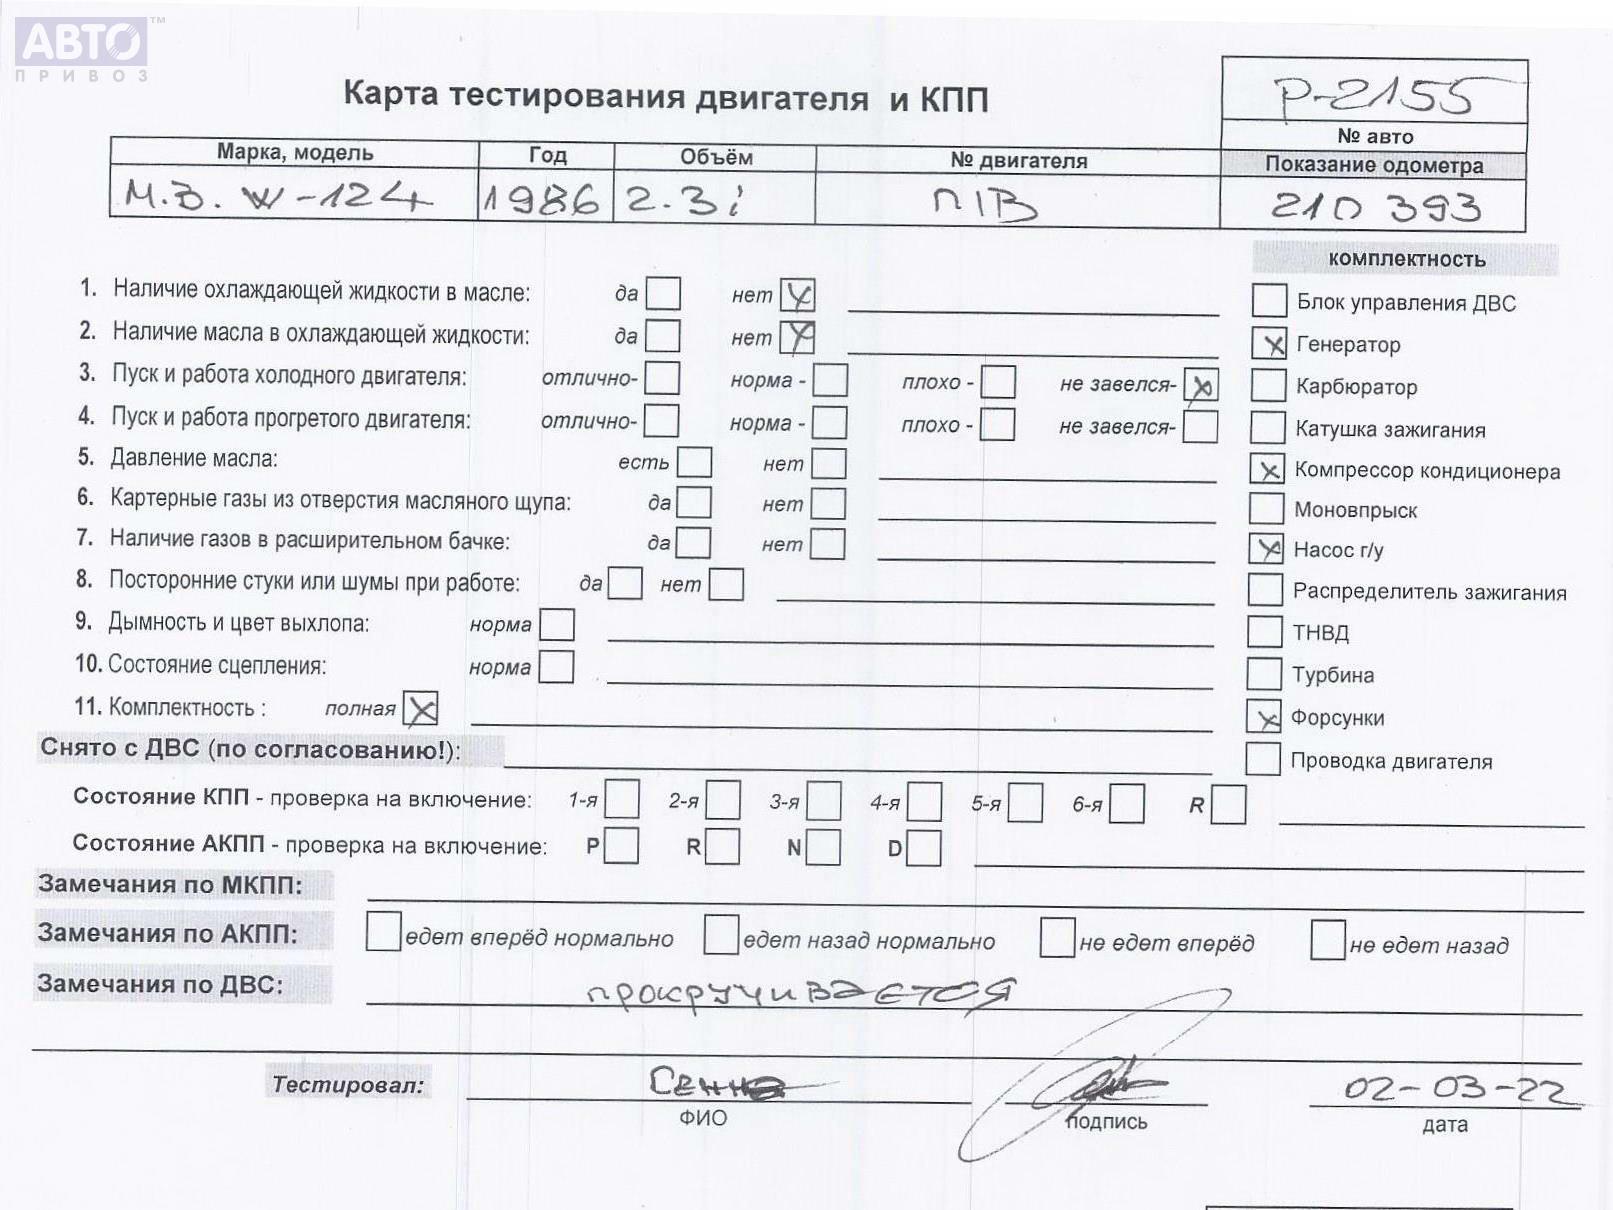 АВТО™
ПРИВОЗ
Карта тестирования двигателя и КПП
P-2155
№ авто
Марка, модель Год Объём № двигателя Показание одометра
М.В. W-124 1986 2.3i П1В 210 393
комплектность
1. Наличие охлаждающей жидкости в масле: да нет X
Блок управления ДВС
2. Наличие масла в охлаждающей жидкости: да нет X
X Генератор
3. Пуск и работа холодного двигателя: отлично- норма - плохо - не завелся- X
Карбюратор
4. Пуск и работа прогретого двигателя: отлично- норма - плохо - не завелся-
Катушка зажигания
5. Давление масла: есть нет
X Компрессор кондиционера
6. Картерные газы из отверстия масляного щупа: да нет
Моновпрыск
7. Наличие газов в расширительном бачке: да нет
X Насос г/у
8. Посторонние стуки или шумы при работе: да нет
Распределитель зажигания
9. Дымность и цвет выхлопа: норма
ТНВД
10. Состояние сцепления: норма
Турбина
11. Комплектность : полная X
X Форсунки
Снято с ДВС (по согласованию!):
Проводка двигателя
Состояние КПП - проверка на включение: 1-я 2-я 3-я 4-я 5-я 6-я R
Состояние АКПП - проверка на включение: P R N D
Замечания по МКПП:
Замечания по АКПП: едет вперёд нормально едет назад нормально не едет вперёд не едет назад
Замечания по ДВС: прокручивается
Тестировал: 02-03-22
ФИО подпись дата